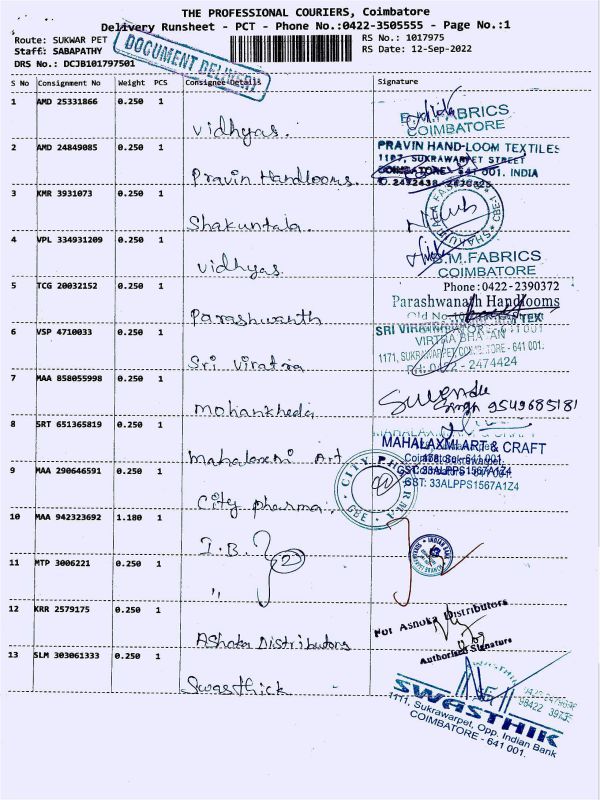 THE PROFESSIONAL COURIERS, Coimbatore
Delivery Runsheet - PCT - Phone No.:0422-3505555 - Page No.:1
Route: SUKWAR PET
Staff: SABAPATHY
DRS No.: DCJB101797501
DOCUMENT DELIVERY
RS No.: 1017975
RS Date: 12-Sep-2022
S No Consignment No Weight PCS Consignee Details Signature
1 AMD 25331866 0.250 1
Vidhyas.
FABRICS
COIMBATORE
2 AMD 24849085 0.250 1
Pravin Handlooms.
PRAVIN HAND-LOOM TEXTILES
1187, SUKRAWARPET STREET
COIMBATORE 641 001. INDIA
3 KMR 3931073 0.250 1
Shakuntala.
4 VPL 334931209 0.250 1
vidhyas.
B.M.FABRICS
COIMBATORE
5 TCG 20032152 0.250 1
Parashwanth
Phone:0422-2390372
Parashwanath Handlooms
6 VSP 4710033 0.250 1
Sri Viratra
TEX
SRI
VIRTRA BHAVAN
1171, SUKRAWARPET, COIMBATORE - 641 001.
PH: 0422 - 2474424
7 MAA 858055998 0.250 1
Mohankheda
8 SRT 651365819 0.250 1
Mahalaxmi Art
MAHALAXMI ART & CRAFT
GST: 33ALPPS1567A1Z4
GST: 33ALPPS1567A1Z4
9 MAA 290646591 0.250 1
City pharma.
CITY PHARMA
CBE-1
10 MAA 942323692 1.180 1
I.B.
2
INDIAN BANK
11 MTP 3006221 0.250 1
"
12 KRR 2579175 0.250 1
Ashoka Distributors
For Ashoka Distributors
Authorised Signature
13 SLM 303061333 0.250 1
Swasthick
SWASTHIK
1111, Sukrawarpet, Opp. Indian Bank
COIMBATORE - 641 001.